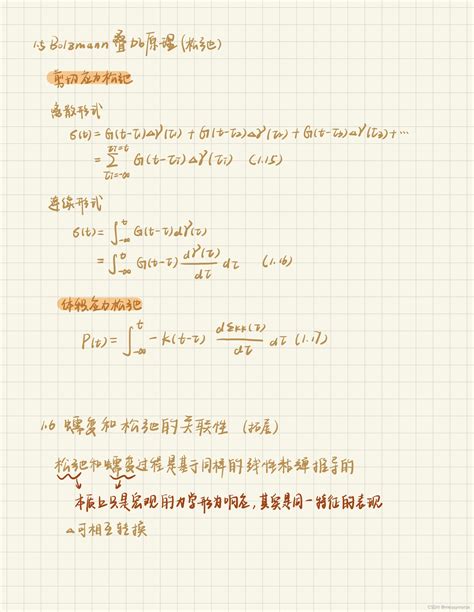 1.5 Bolzmann 叠加原理(松弛)
剪切应力松弛
离散形式
σ(t) = G(t-τ₁)Δγ(τ₁) + G(t-τ₂)Δγ(τ₂) + G(t-τ₃)Δγ(τ₃) + ⋯
= ∑_{τi=-∞}^{τi=t} G(t-τi)Δγ(τi) (1.15)
连续形式
σ(t) = ∫_{-∞}^{t} G(t-τ)dγ(τ)
= ∫_{-∞}^{t} G(t-τ) dγ(τ)/dτ dτ (1.16)
体积应力松弛
P(t) = ∫_{-∞}^{t} -K(t-τ) dεkk(τ)/dτ dτ (1.17)
1.6 蠕变和松弛的关联性 (拓展)
松弛和蠕变过程是基于同样的线性粘弹推导的
本质上只是宏观的力学形为响应,其实是同一特征的表现
△可相互转换